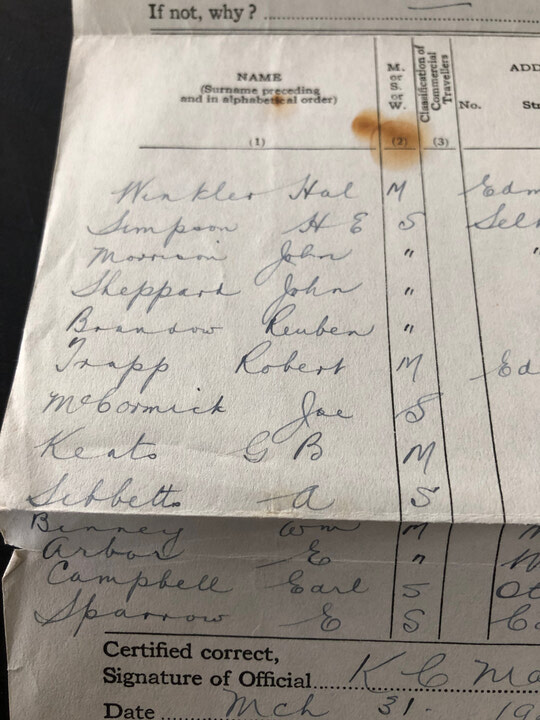 If not, why?
NAME M. or S. or W. Classification of Commercial Travellers ADD
(Surname preceding and in alphabetical order) No. St
(1) (2) (3)
Winkler Hal M Edm
Simpson H E S Sel
Morrison John " "
Sheppard John "
Brandow Reuben "
Trapp Robert M Ed
McCormick Joe S
Keats G B M
Sibbetts A S
Binney Wm M
Arbor E "
Campbell Earl S Ot
Sparrow E S Ca
Certified correct,
Signature of Official K C Ma
Date Mch 31. 19